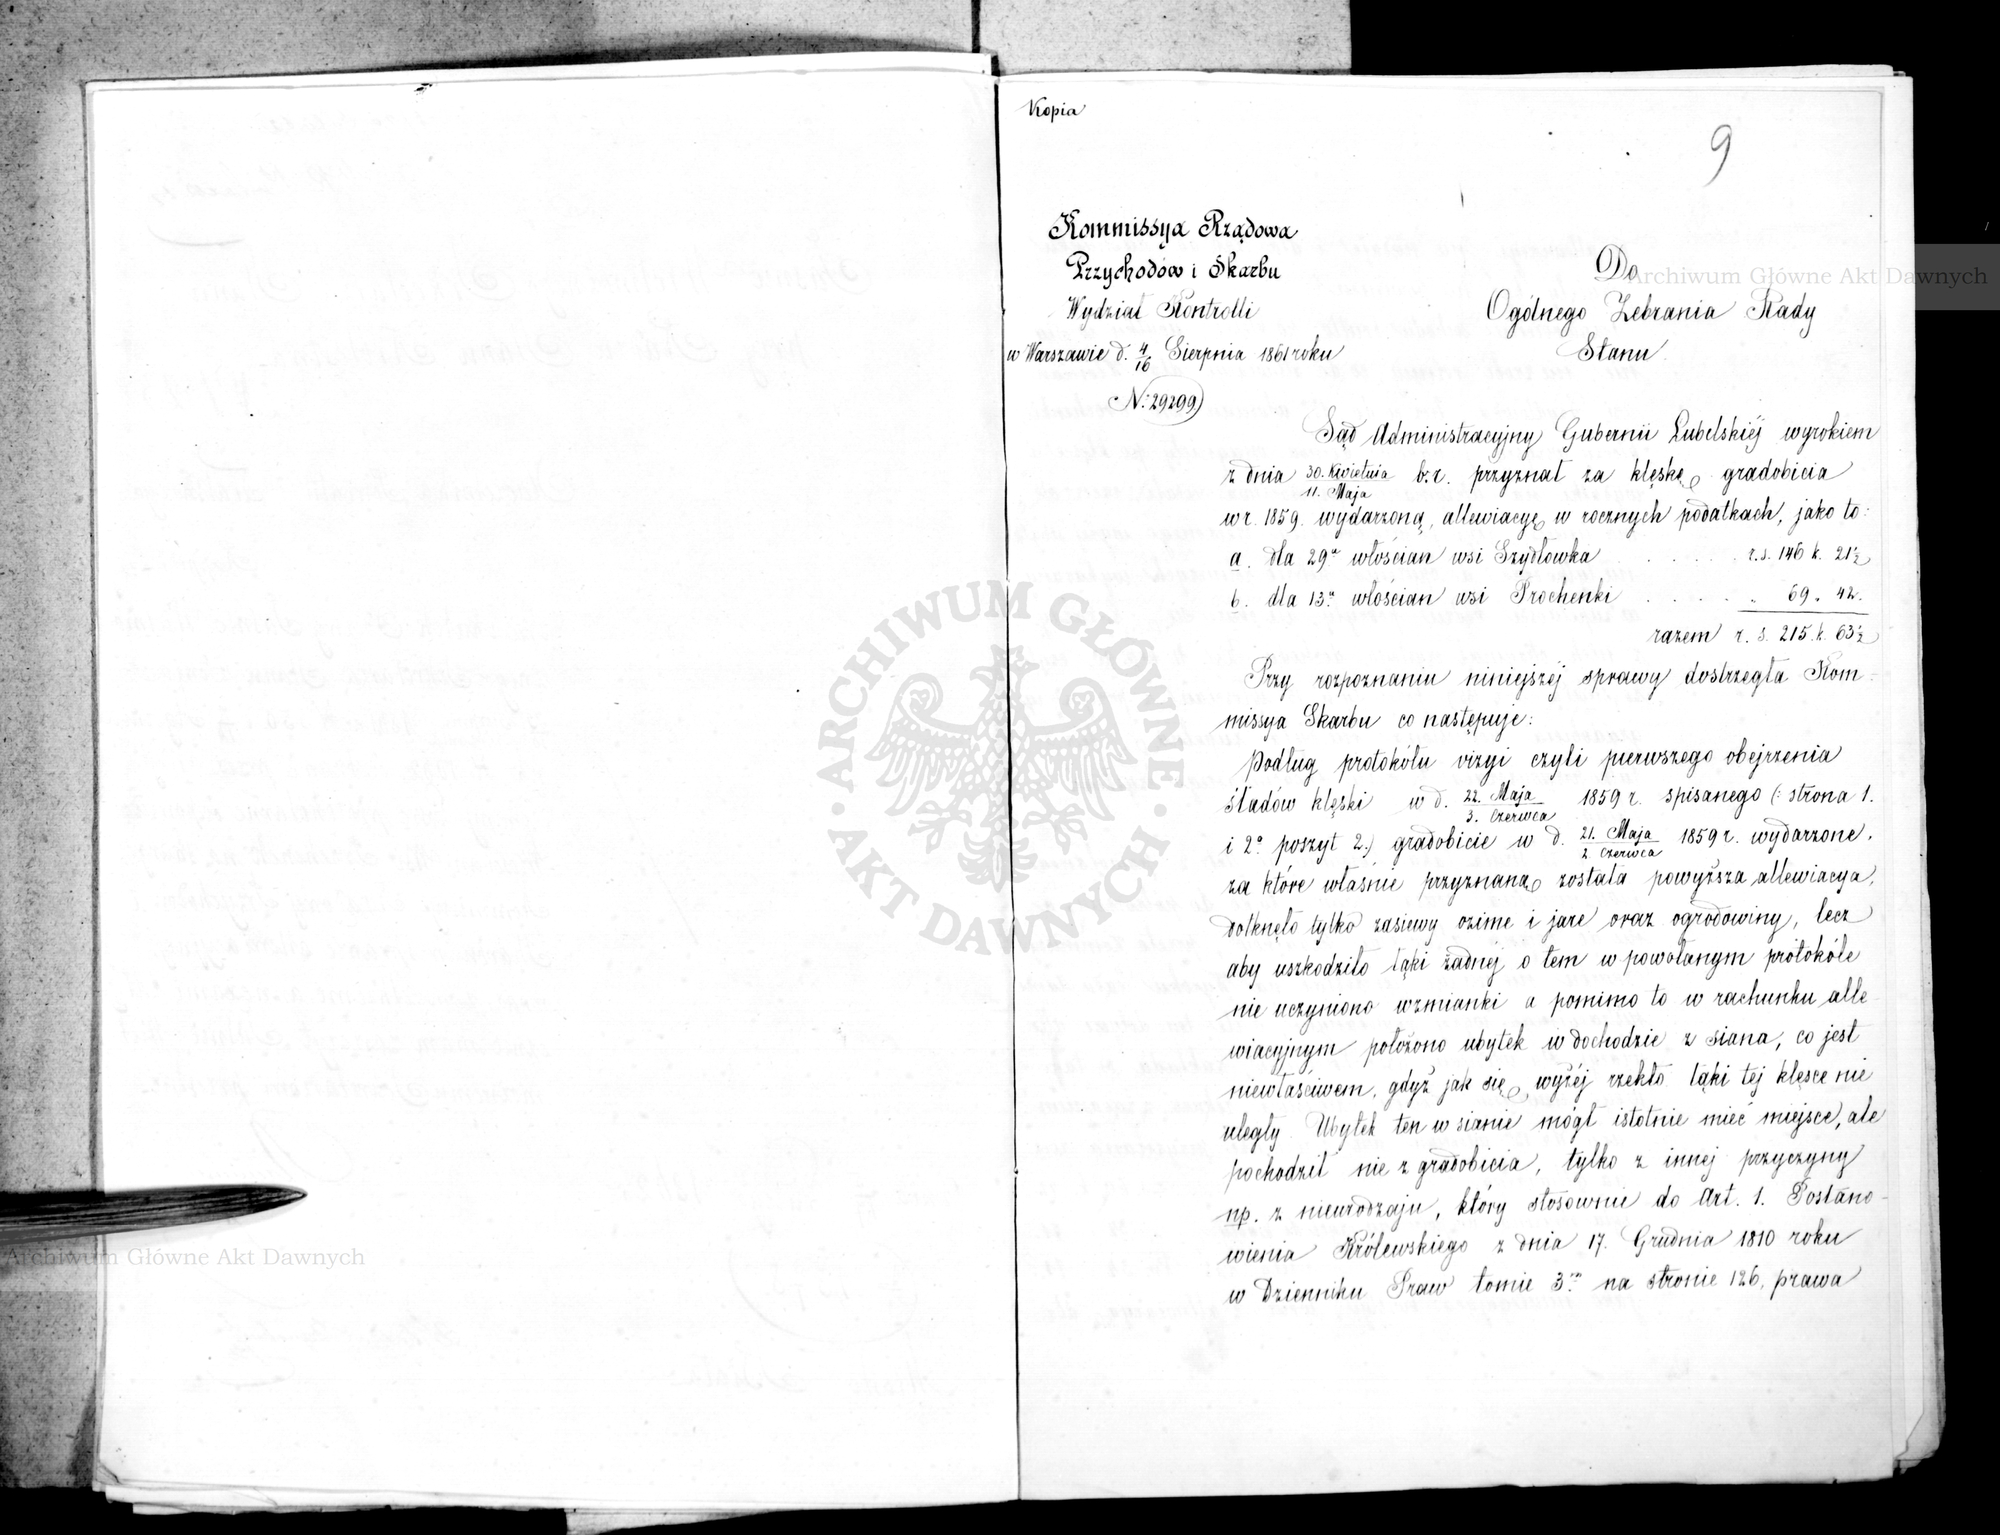 Kopia
9
Kommissya Rządowa
Przychodów i Skarbu
Wydział Kontrolli
w Warszawie d. 4/16 Sierpnia 1861 roku
N: 29299
Do
Ogólnego Zebrania Rady
Stanu
Sąd Administracyjny Gubernii Lubelskiéj wyrokiem
z dnia 30. Kwietnia / 11. Maja b.r. przyznał za klęskę gradobicia
w r. 1859. wydarzoną, allewiacyę w rocznych podatkach, jako to:
a. dla 29u włościan wsi Szydłówka . . . . . r.s. 146 k. 21½
b. dla 13u włościan wsi Prochenki . . . . . „ 69 „ 42.
razem r. s. 215. k. 63½
Przy rozpoznaniu niniejszéj sprawy dostrzegła Kom=
missya Skarbu co następuje:
Podług protokółu vizyi czyli pierwszego obejrzenia
śladów klęski w d. 22. Maja / 3. Czerwca 1859 r. spisanego (: strona 1.
i 2a poszyt 2.) gradobicie w d. 21. Maja / 2. Czerwca 1859 r. wydarzone,
za które właśnie przyznaną została powyższa allewiacya,
dotknęło tylko zasiewy ozime i jare oraz ogrodowiny, lecz
aby uszkodziło łąki żadnéj o tem w powołanym protokóle
nie uczyniono wzmianki a pomimo to w rachunku alle-
wiacyjnym położono ubytek w dochodzie z siana, co jest
niewłaściwem, gdyż jak się wyżéj rzekło łąki tej klęsce nie
uległy. Ubytek ten w sianie mógł istotnie mieć miejsce, ale
pochodził nie z gradobicia, tylko z innej przyczyny
np. z nieurodzaju, który stosownie do Art. 1. Postano-
wienia Królewskiego z dnia 17. Grudnia 1810 roku
w Dzienniku Praw tomie 3m na stronie 126, prawa
Archiwum Główne Akt Dawnych
Archiwum Główne Akt Dawnych
ARCHIWUM GŁÓWNE · AKT DAWNYCH ·